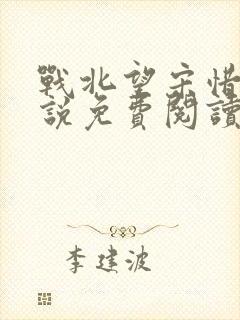 戰北望宋惜
說免費閱讀
李建波